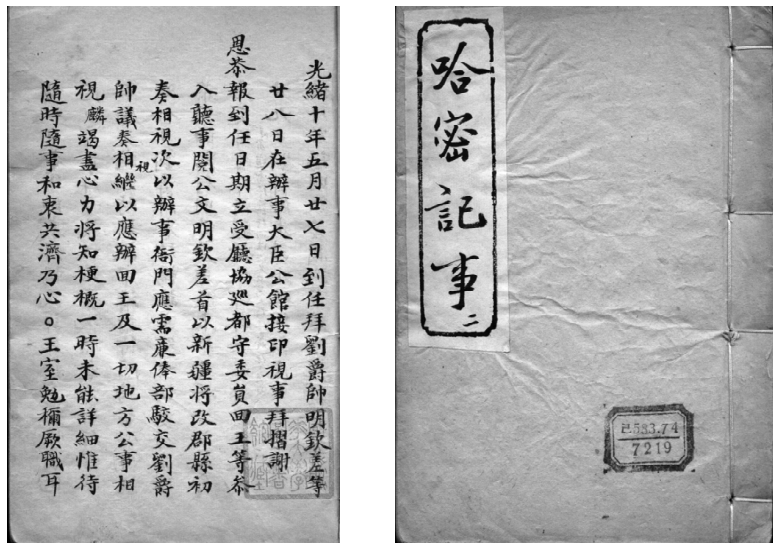 光緒十年五月廿七日到任拜劉爵帥明欽差等
廿八日在辦事大臣公館接印視事拜摺謝
恩恭報到任日期立受廳協廵都守委員回王等叅
入聽事閱公文明欽差首以新疆將改郡縣初
奏相視次以辦事衙門應需廉俸部駁交劉爵
帥議奏相繼以應辦回王及一切地方公事相
視
視麟竭盡心力將知梗概一時未能詳細惟待
隨時隨事和衷共濟乃心○王室勉檷厥職耳
哈密記事
二
533.74
7219